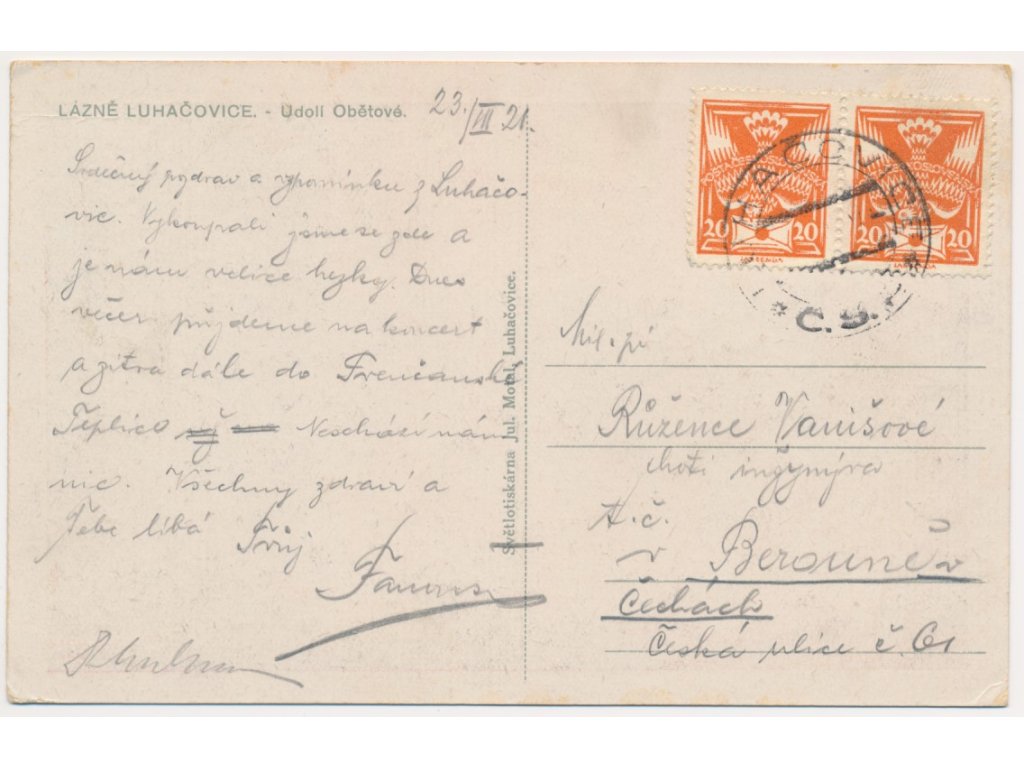 LÁZNĚ LUHAČOVICE. - Udolí Obětové.
23./VII 21.
Srdečný pozdrav a vzpomínku z Luhačo-
vic. Vykoupali jsme se zde a
je nám velice hezky. Dnes
večer půjdeme na koncert
a zítra dále do Trenčanské
Teplice Neschází nám
nic. Všechny zdraví a
Tebe líbá Tvůj
Světlotiskárna Jul. Motal, Luhačovice.
ČESKOSLOVENSKÁ
20 20
ČESKOSLOVENSKÁ
20 20
LUHAČOVICE
* Č.S. *
Mil. pí
Růžence Vanišové
choti inženýra
t. č.
v Berouně v
Čechách
Česká ulice č. 61